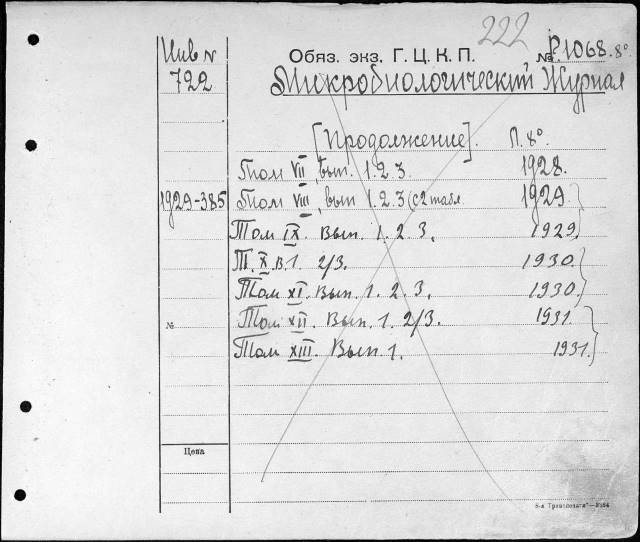 222
Инв №
722
Обяз. экз. Г. Ц. К. П. № Р1068. 8°
Микробиологический Журнал
[Продолжение]. Л. 8°.
Том VII, вып. 1. 2 3. 1928.
1929-385 Том VIII, вып 1. 2. 3 (с 2 табл. 1929.
Том IX. Вып. 1. 2 3. 1929.
Т. X. в. 1. 2/3. 1930.
Том XI. Вып. 1. 2 3. 1930.
№ Том XII. Вып. 1. 2/3. 1931.
Том XIII. Вып. 1. 1931.
Цена